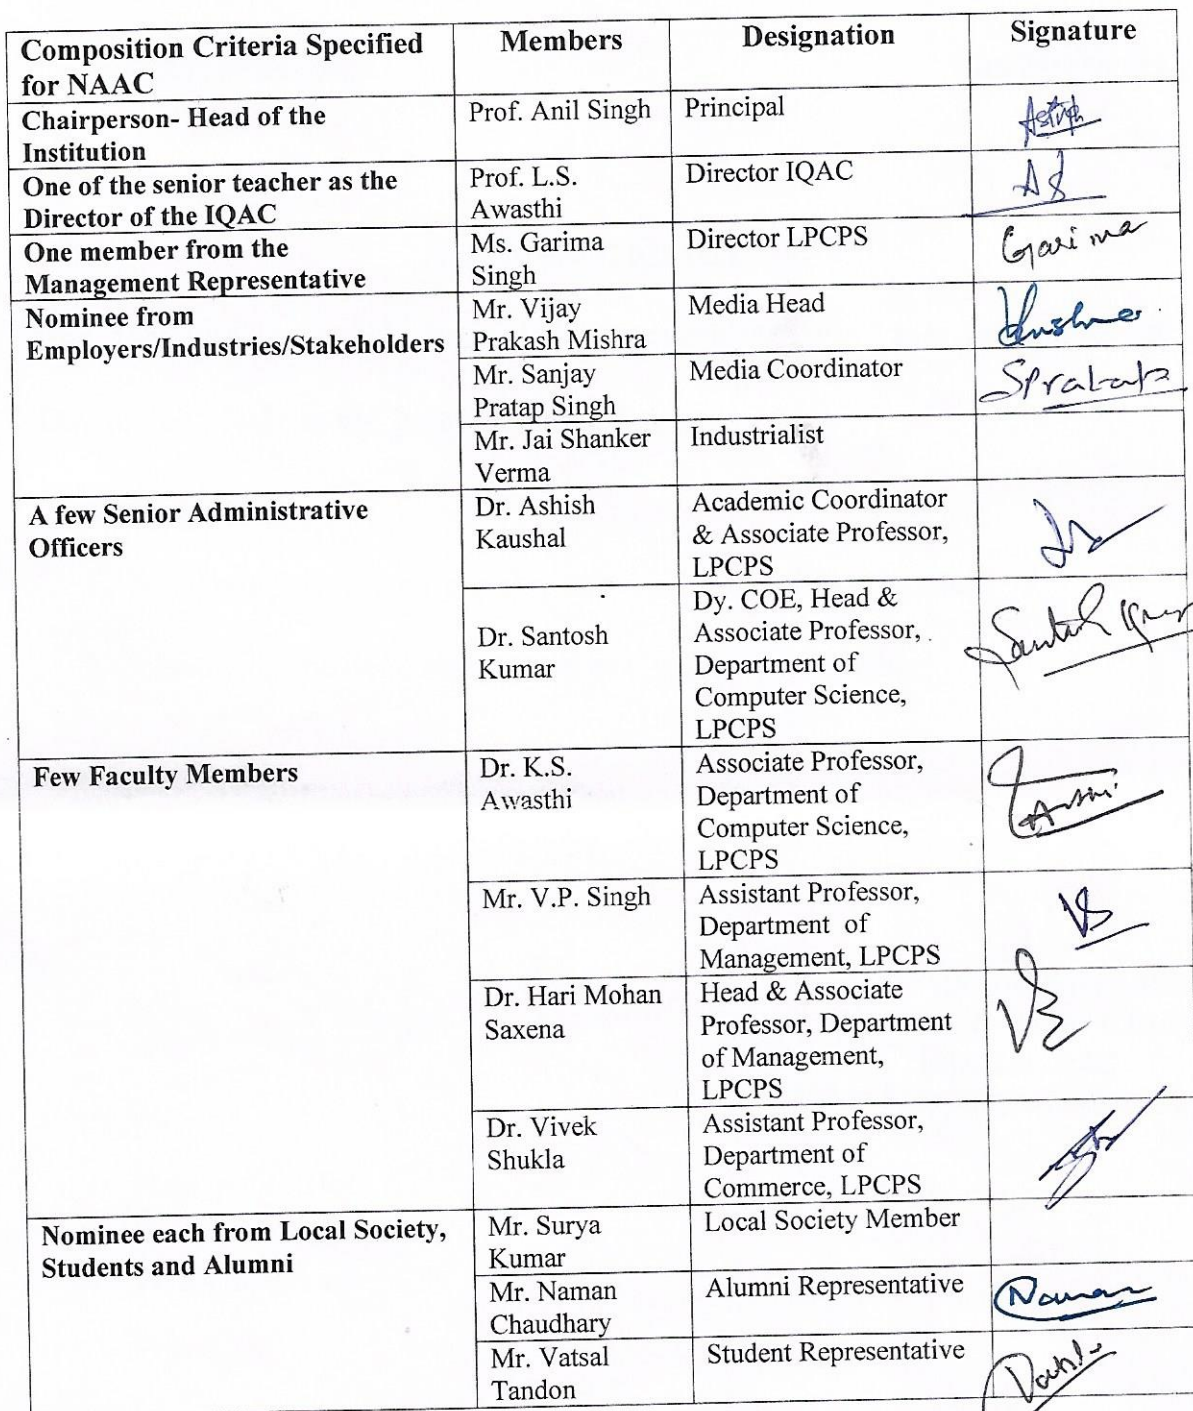 Composition Criteria Specified for NAAC | Members | Designation | Signature
Chairperson- Head of the Institution | Prof. Anil Singh | Principal |
One of the senior teacher as the Director of the IQAC | Prof. L.S. Awasthi | Director IQAC |
One member from the Management Representative | Ms. Garima Singh | Director LPCPS | Garima
Nominee from Employers/Industries/Stakeholders | Mr. Vijay Prakash Mishra | Media Head |
Mr. Sanjay Pratap Singh | Media Coordinator |
Mr. Jai Shanker Verma | Industrialist |
A few Senior Administrative Officers | Dr. Ashish Kaushal | Academic Coordinator & Associate Professor, LPCPS |
Dr. Santosh Kumar | Dy. COE, Head & Associate Professor, Department of Computer Science, LPCPS |
Few Faculty Members | Dr. K.S. Awasthi | Associate Professor, Department of Computer Science, LPCPS |
Mr. V.P. Singh | Assistant Professor, Department of Management, LPCPS |
Dr. Hari Mohan Saxena | Head & Associate Professor, Department of Management, LPCPS |
Dr. Vivek Shukla | Assistant Professor, Department of Commerce, LPCPS |
Nominee each from Local Society, Students and Alumni | Mr. Surya Kumar | Local Society Member |
Mr. Naman Chaudhary | Alumni Representative | Naman
Mr. Vatsal Tandon | Student Representative |